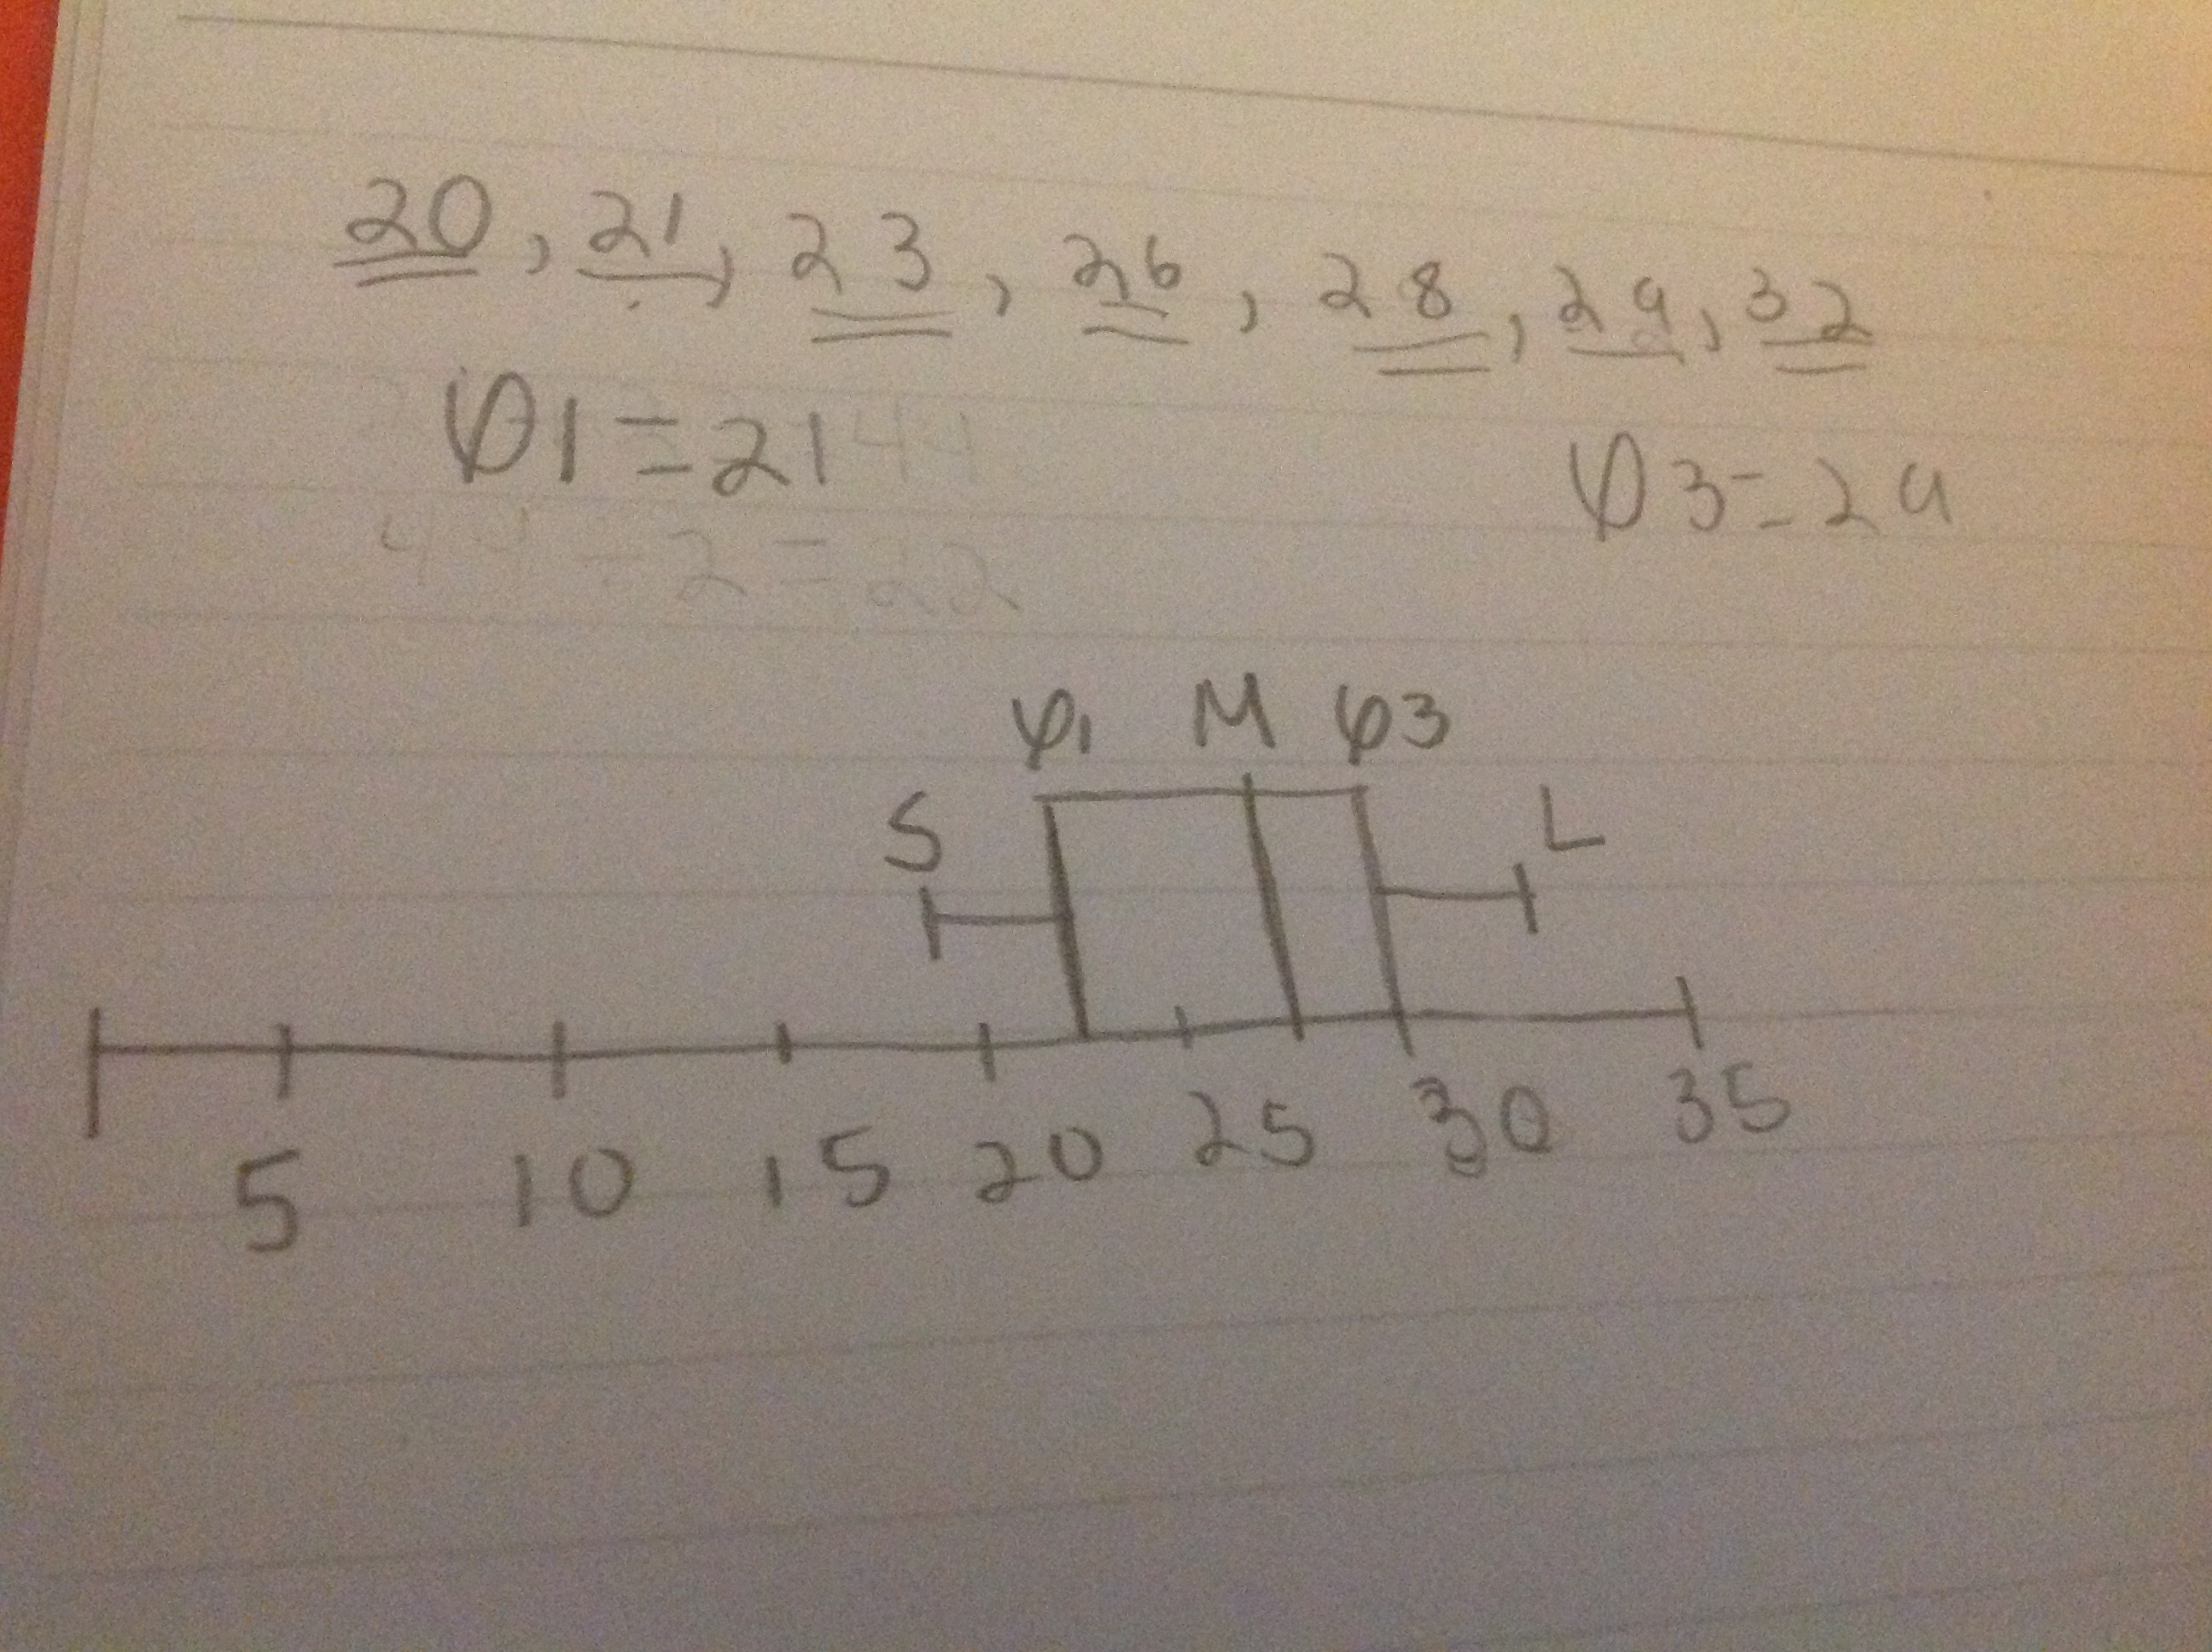 20, 21, 23, 26, 28, 29, 32
Q1=21 Q3=29
44÷2=22
Q1 M Q3
S L
5 10 15 20 25 30 35